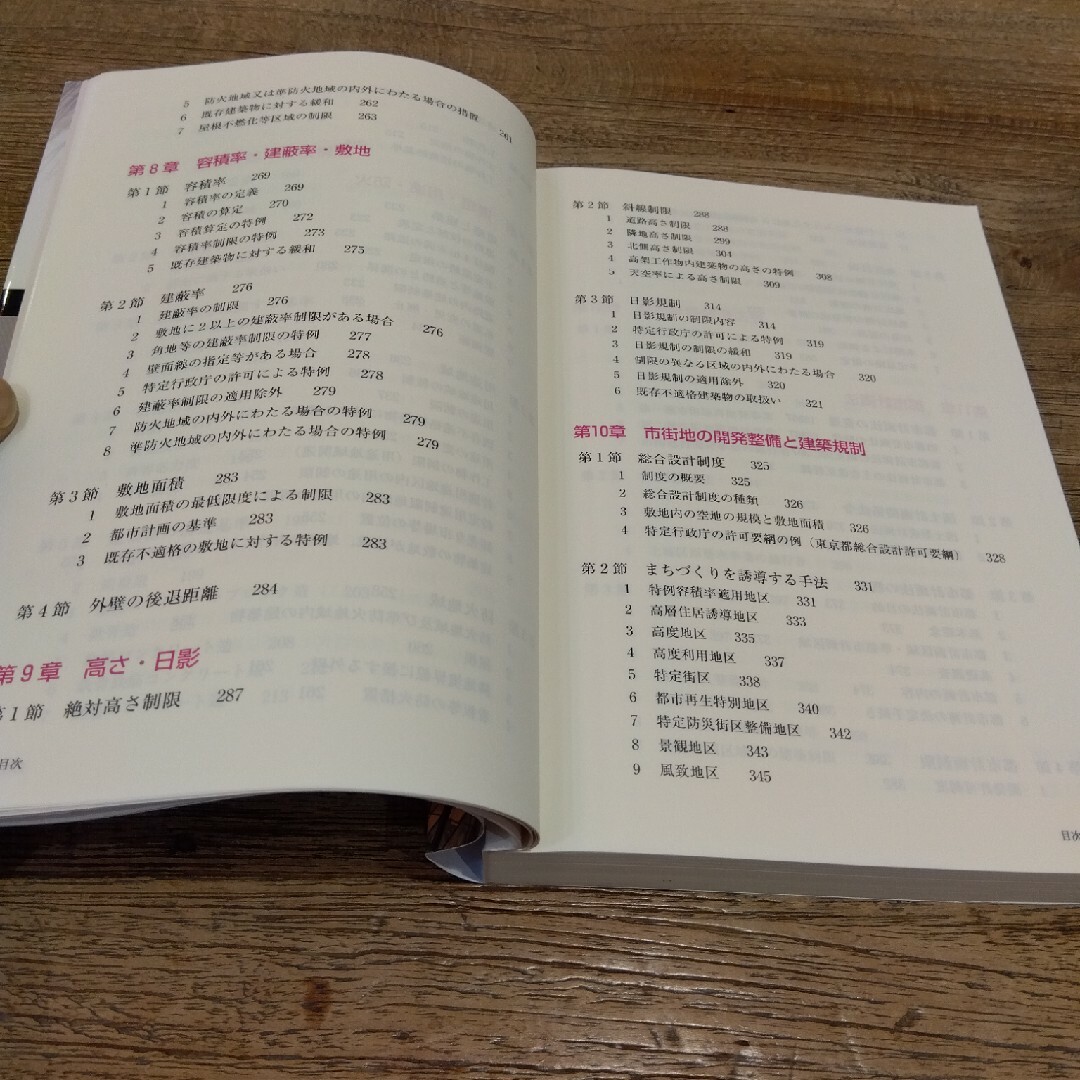 5 防火地域又は準防火地域の内外にわたる場合の措置 261
6 既存建築物に対する緩和 262
7 屋根不燃化等区域の制限 263
第8章 容積率・建蔽率・敷地
第1節 容積率 269
1 容積率の定義 269
2 容積の算定 270
3 容積算定の特例 272
4 容積率制限の特例 273
5 既存建築物に対する緩和 275
第2節 建蔽率 276
1 建蔽率の制限 276
2 敷地に2以上の建蔽率制限がある場合 276
3 角地等の建蔽率制限の特例 277
4 壁面線の指定等がある場合 278
5 特定行政庁の許可による特例 278
6 建蔽率制限の適用除外 279
7 防火地域の内外にわたる場合の特例 279
8 準防火地域の内外にわたる場合の特例 279
第3節 敷地面積 283
1 敷地面積の最低限度による制限 283
2 都市計画の基準 283
3 既存不適格の敷地に対する特例 283
第4節 外壁の後退距離 284
第9章 高さ・日影
第1節 絶対高さ制限 287
目次
第2節 斜線制限 288
1 道路高さ制限 288
2 隣地高さ制限 299
3 北側高さ制限 304
4 高架工作物内建築物の高さの特例 308
5 天空率による高さ制限 309
第3節 日影規制 314
1 日影規制の制限内容 314
2 特定行政庁の許可による特例 319
3 日影規制の制限の緩和 319
4 制限の異なる区域の内外にわたる場合 320
5 日影規制の適用除外 320
6 既存不適格建築物の取扱い 321
第10章 市街地の開発整備と建築規制
第1節 総合設計制度 325
1 制度の概要 325
2 総合設計制度の種類 326
3 敷地内の空地の規模と敷地面積 326
4 特定行政庁の許可要綱の例（東京都総合設計許可要綱） 328
第2節 まちづくりを誘導する手法 331
1 特例容積率適用地区 331
2 高層住居誘導地区 333
3 高度地区 335
4 高度利用地区 337
5 特定街区 338
6 都市再生特別地区 340
7 特定防災街区整備地区 342
8 景観地区 343
9 風致地区 345
目次